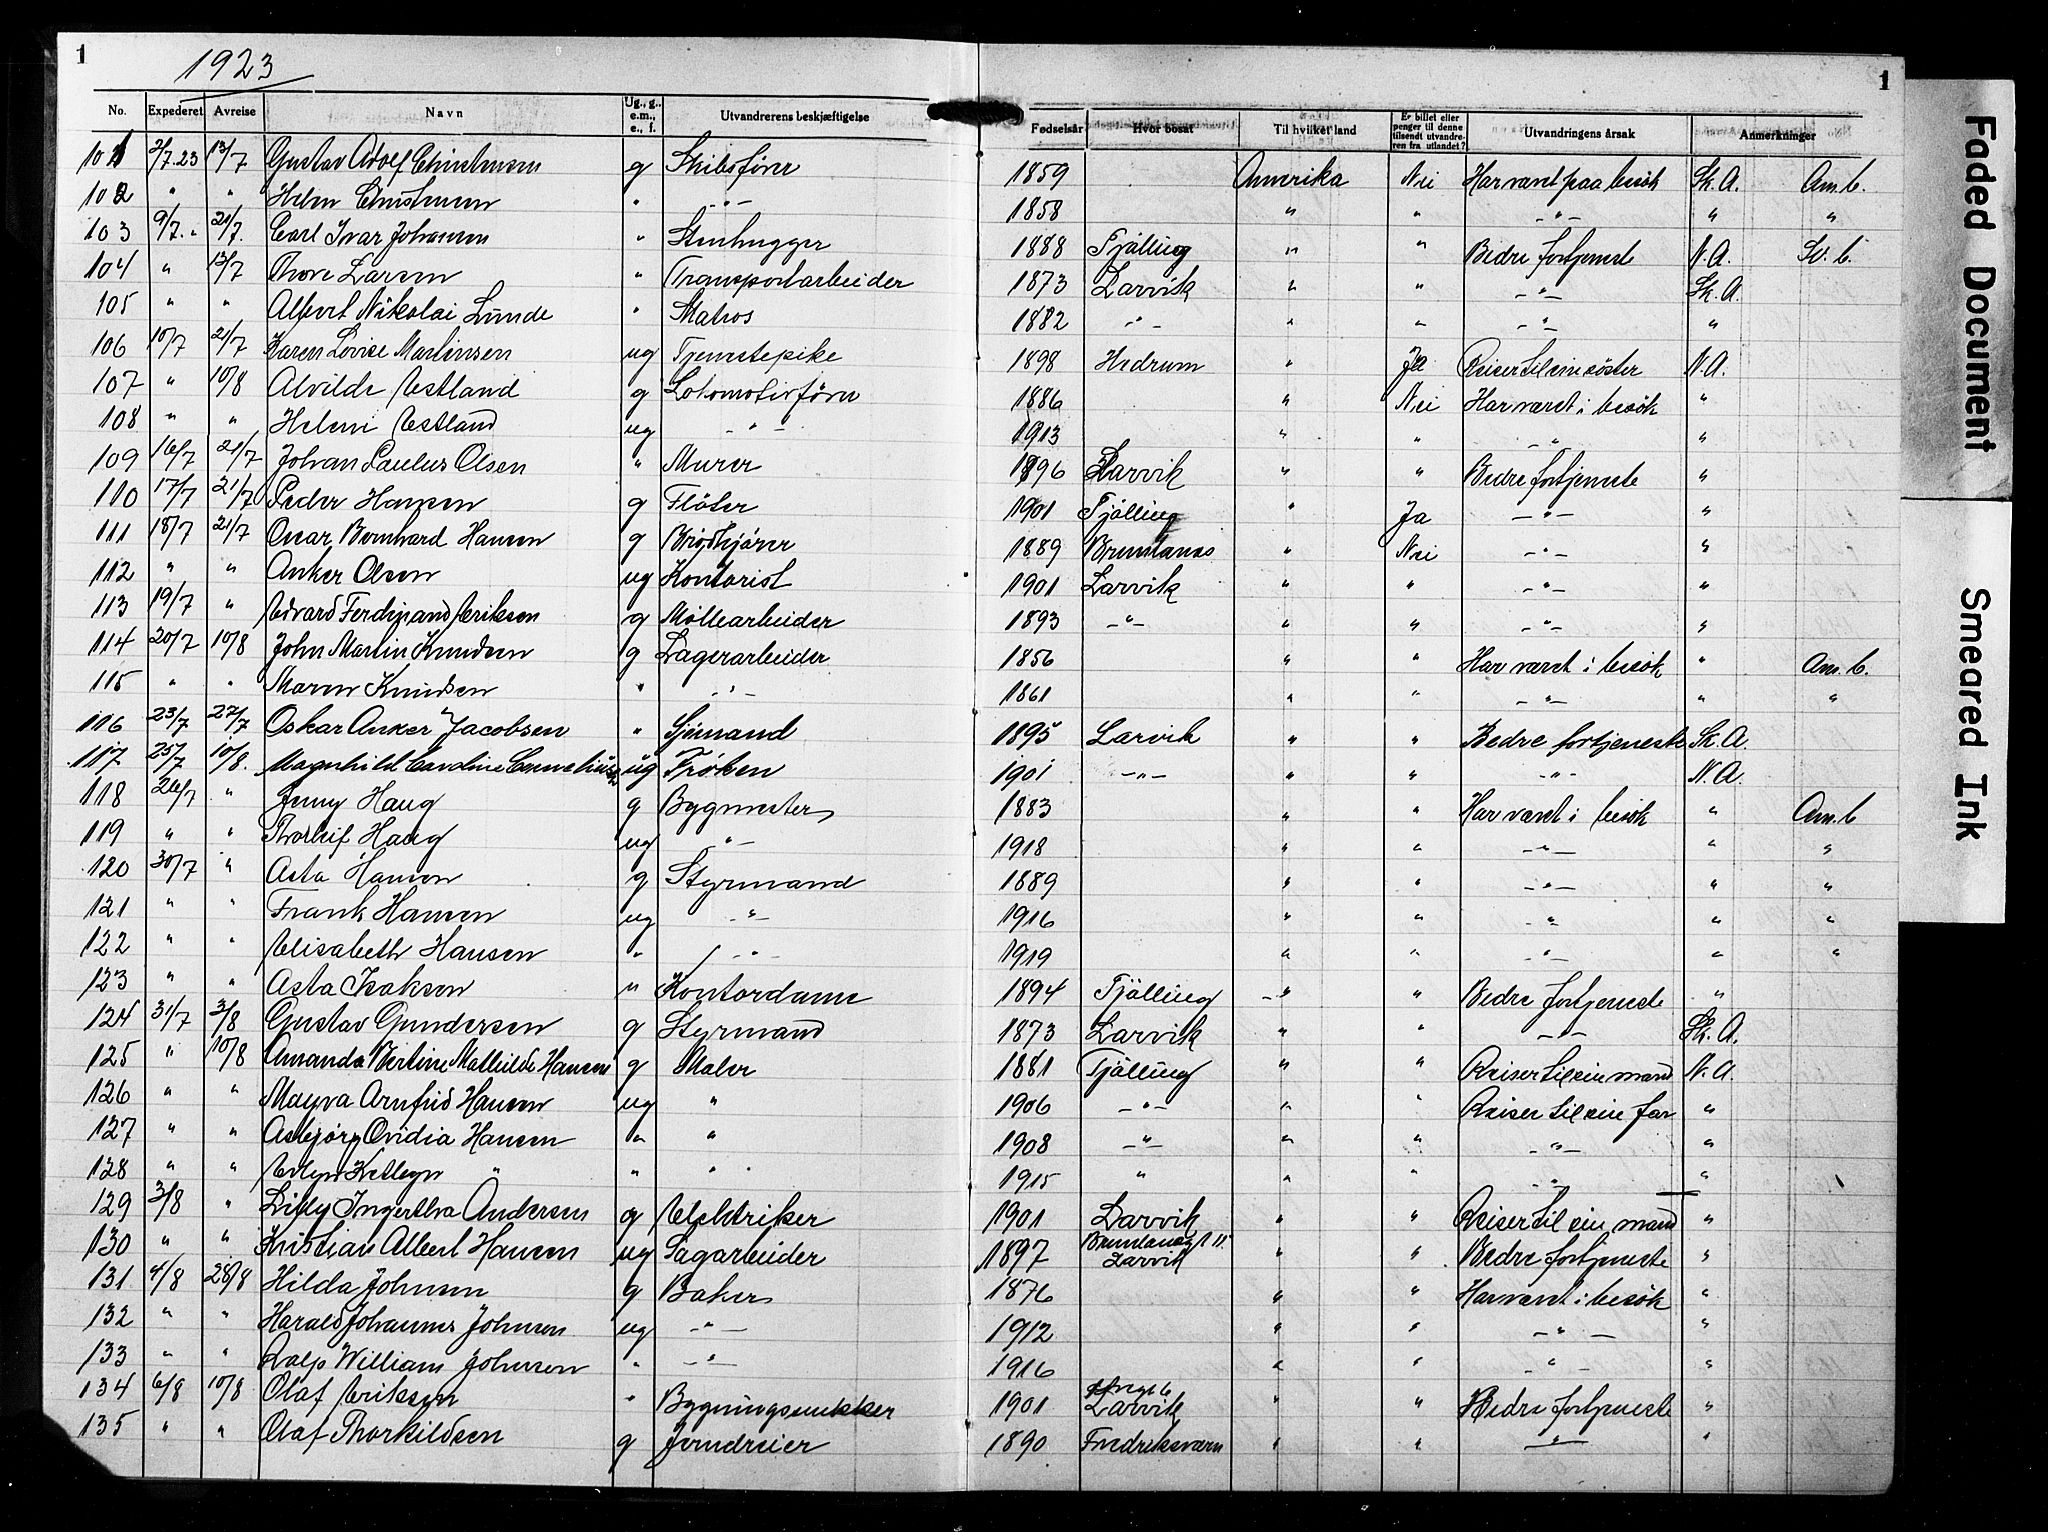 1
1923
1
No. Expederet Avreise Navn Ug., g., e.m., e., f. Utvandrerens beskjæftigelse Fødselsår Hvor bosat Til hvilket land Er billet eller penger til denne tilsendt utvandreren fra utlandet? Utvandringens årsak Anmerkninger
101 2/7.23 13/7 Gustav Adolf Christensen g Skibsfører 1859 Amerika Nei Har været paa besök Sk. A. Am. b.
102 " " Helen Christensen " -"- 1858 " " -"- " "
103 9/7. " 21/7. Carl Ivar Johansen " Stenhugger 1888 Tjölling " " Bedre fortjeneste N. A. Sv. b.
104 " 13/7 Thore Larsen " Transportarbeider 1873 Larvik " " -"- Sk. A.
105 " " Albert Nikolai Lunde " Matros 1882 -"- " " -"- "
106 10/7 21/7 Karen Lovise Martinsen ug Tjenestepike 1898 Hedrum " Ja Reiser til sin söster N. A.
107 " 10/8 Alvilde Estland g Lokomotivförer 1886 " Nei Har været i besök "
108 " " Heleni Estland ug -"- 1913 " " -"- "
109 16/7 21/7 Johan Paulus Olsen " Murer 1896 Larvik " " Bedre fortjeneste "
110 17/7 21/7 Peder Hansen g Flöter 1901 Tjölling " Ja -"- "
111 18/7 21/7 Oscar Bernhard Hansen g Brödkjører 1889 Brunlanæs " Nei -"- "
112 " " Anker Olsen ug Kontorist 1901 Larvik " " -"- "
113 19/7 " Edvard Ferdinand Eriksen g Möllearbeider 1893 -"- " " -"- "
114 20/7 10/8 John Martin Knudsen g Lagerarbeider 1856 " " Har været i besök " Am. b.
115 " " Maren Knudsen " -"- 1861 " " -"- " "
116 23/7 27/7 Oskar Anker Jacobsen " Sjömand 1895 Larvik " " Bedre fortjeneste Sk. A.
117 25/7 10/8. Magnhild Caroline Corneliussen ug Fröken 1901 -"- " " -"- N. A.
118 26/7 " Jenny Haug g Bygmester 1883 " " Har været i besök " Am. b
119 " " Thorleif Haug ug -"- 1918 " " -"- " "
120 30/7 " Asta Hansen g Styrmand 1889 " " -"- " "
121 " " Frank Hansen ug -"- 1916 " " -"- " "
122 " " Elisabeth Hansen " -"- 1919 " " -"- " "
123 " " Asta Isaksen " Kontordame 1894 Tjölling -"- " Bedre fortjeneste "
124 31/7 3/8 Gustav Gundersen g Styrmand 1873 Larvik " " -"- Sk. A.
125 " 10/8 Amanda Bertine Mathilde Hansen g Maler 1881 Tjölling " " Reiser til sin mand N. A.
126 " " Mayva Arnfrid Hansen ug " 1906 -"- " " Reiser til sin far "
127 " " Asbjörg Ovidia Hansen " " 1908 -"- " " -"- "
128 " " " " " 1915 " " " " "
129 3/8 " Lilly Ingertha Andersen g Elektriker 1901 Larvik " " Reiser til sin mand "
130 " " Kristian Albert Hansen ug Sagarbeider 1897 Brunlanæs Larvik " " Bedre fortjeneste "
131 4/8 28/8 Hilda Johnsen g Baker 1876 " " Har været i besök "
132 " " Harald Johannes Johnsen ug -"- 1912 " " -"- "
133 " " Ralp William Johnsen " -"- 1916 " " -"- "
134 6/8 10/8 Olaf Eriksen " Bygningssnekker 1901 Larvik " " Bedre fortjeneste "
135 " " Olaf Thorkildsen g Jerndreier 1890 Fredriksværn " " -"- "
Faded Document
Smeared Ink